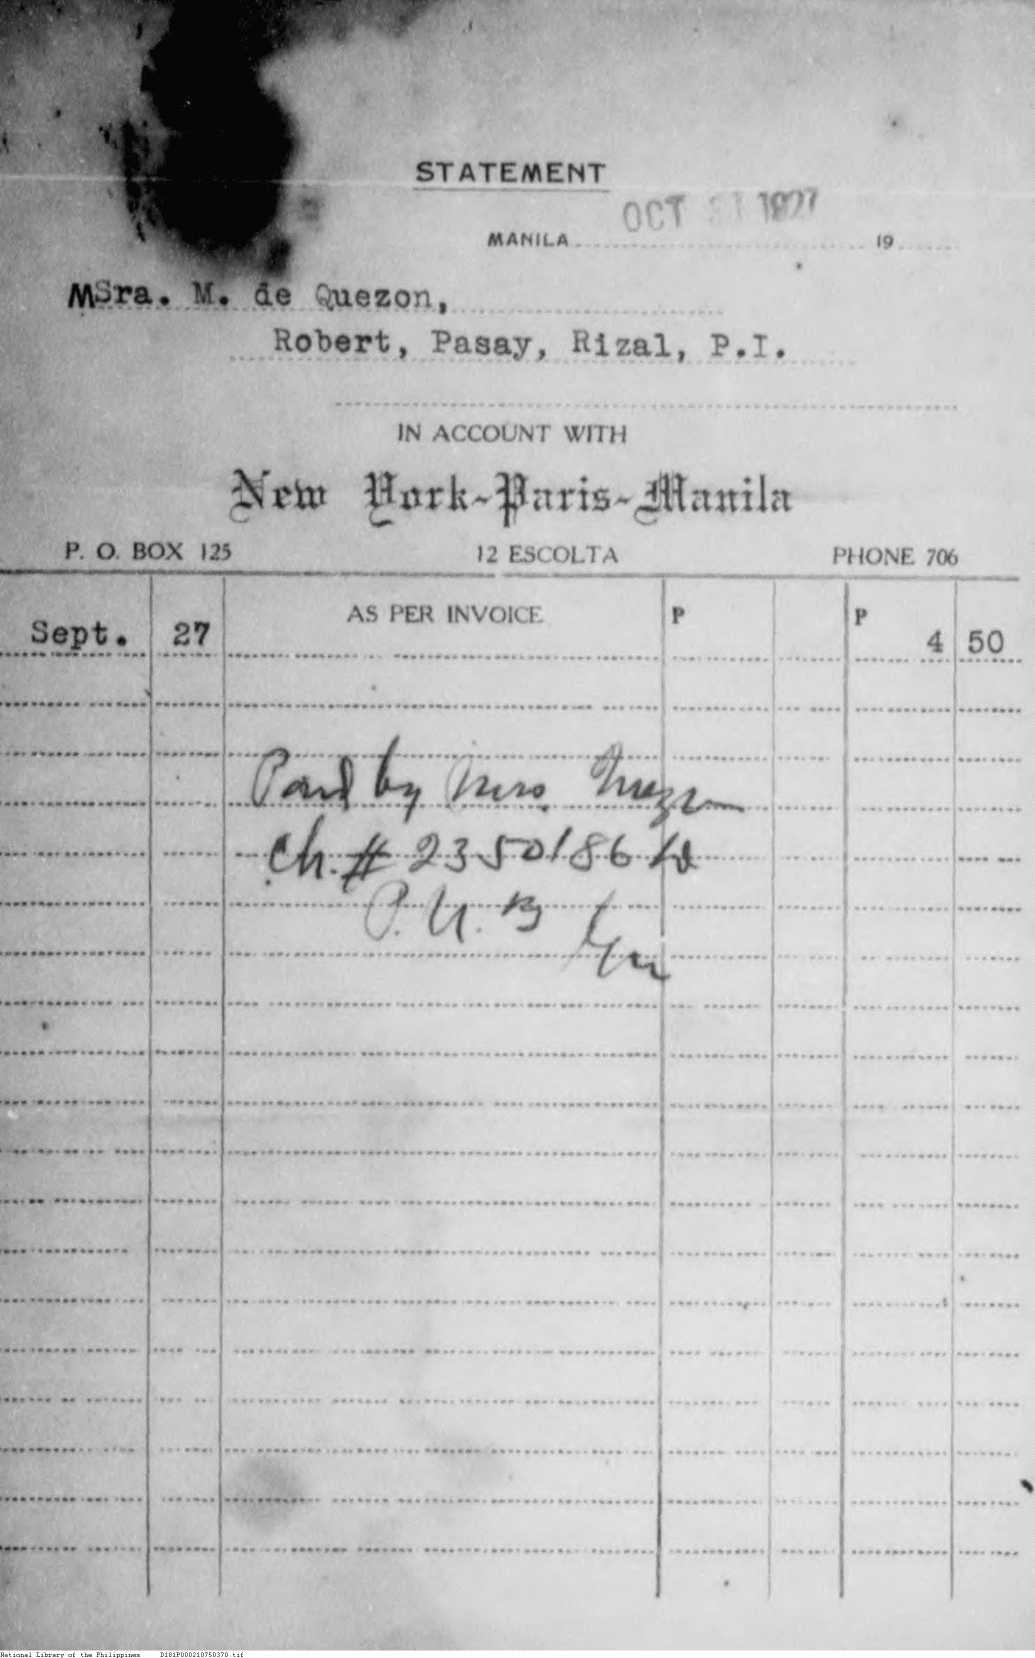 STATEMENT
OCT 31 1927
MANILA 19
MSra. M. de Quezon,
Robert, Pasay, Rizal, P.I.
IN ACCOUNT WITH
New York-Paris-Manila
P. O. BOX 125 12 ESCOLTA PHONE 706
AS PER INVOICE P P
Sept. 27 4 50
Paid by Mrs. Quezon
Ch. # 235018
P. N. B
National Library of the Philippines D181P000210750370.tif